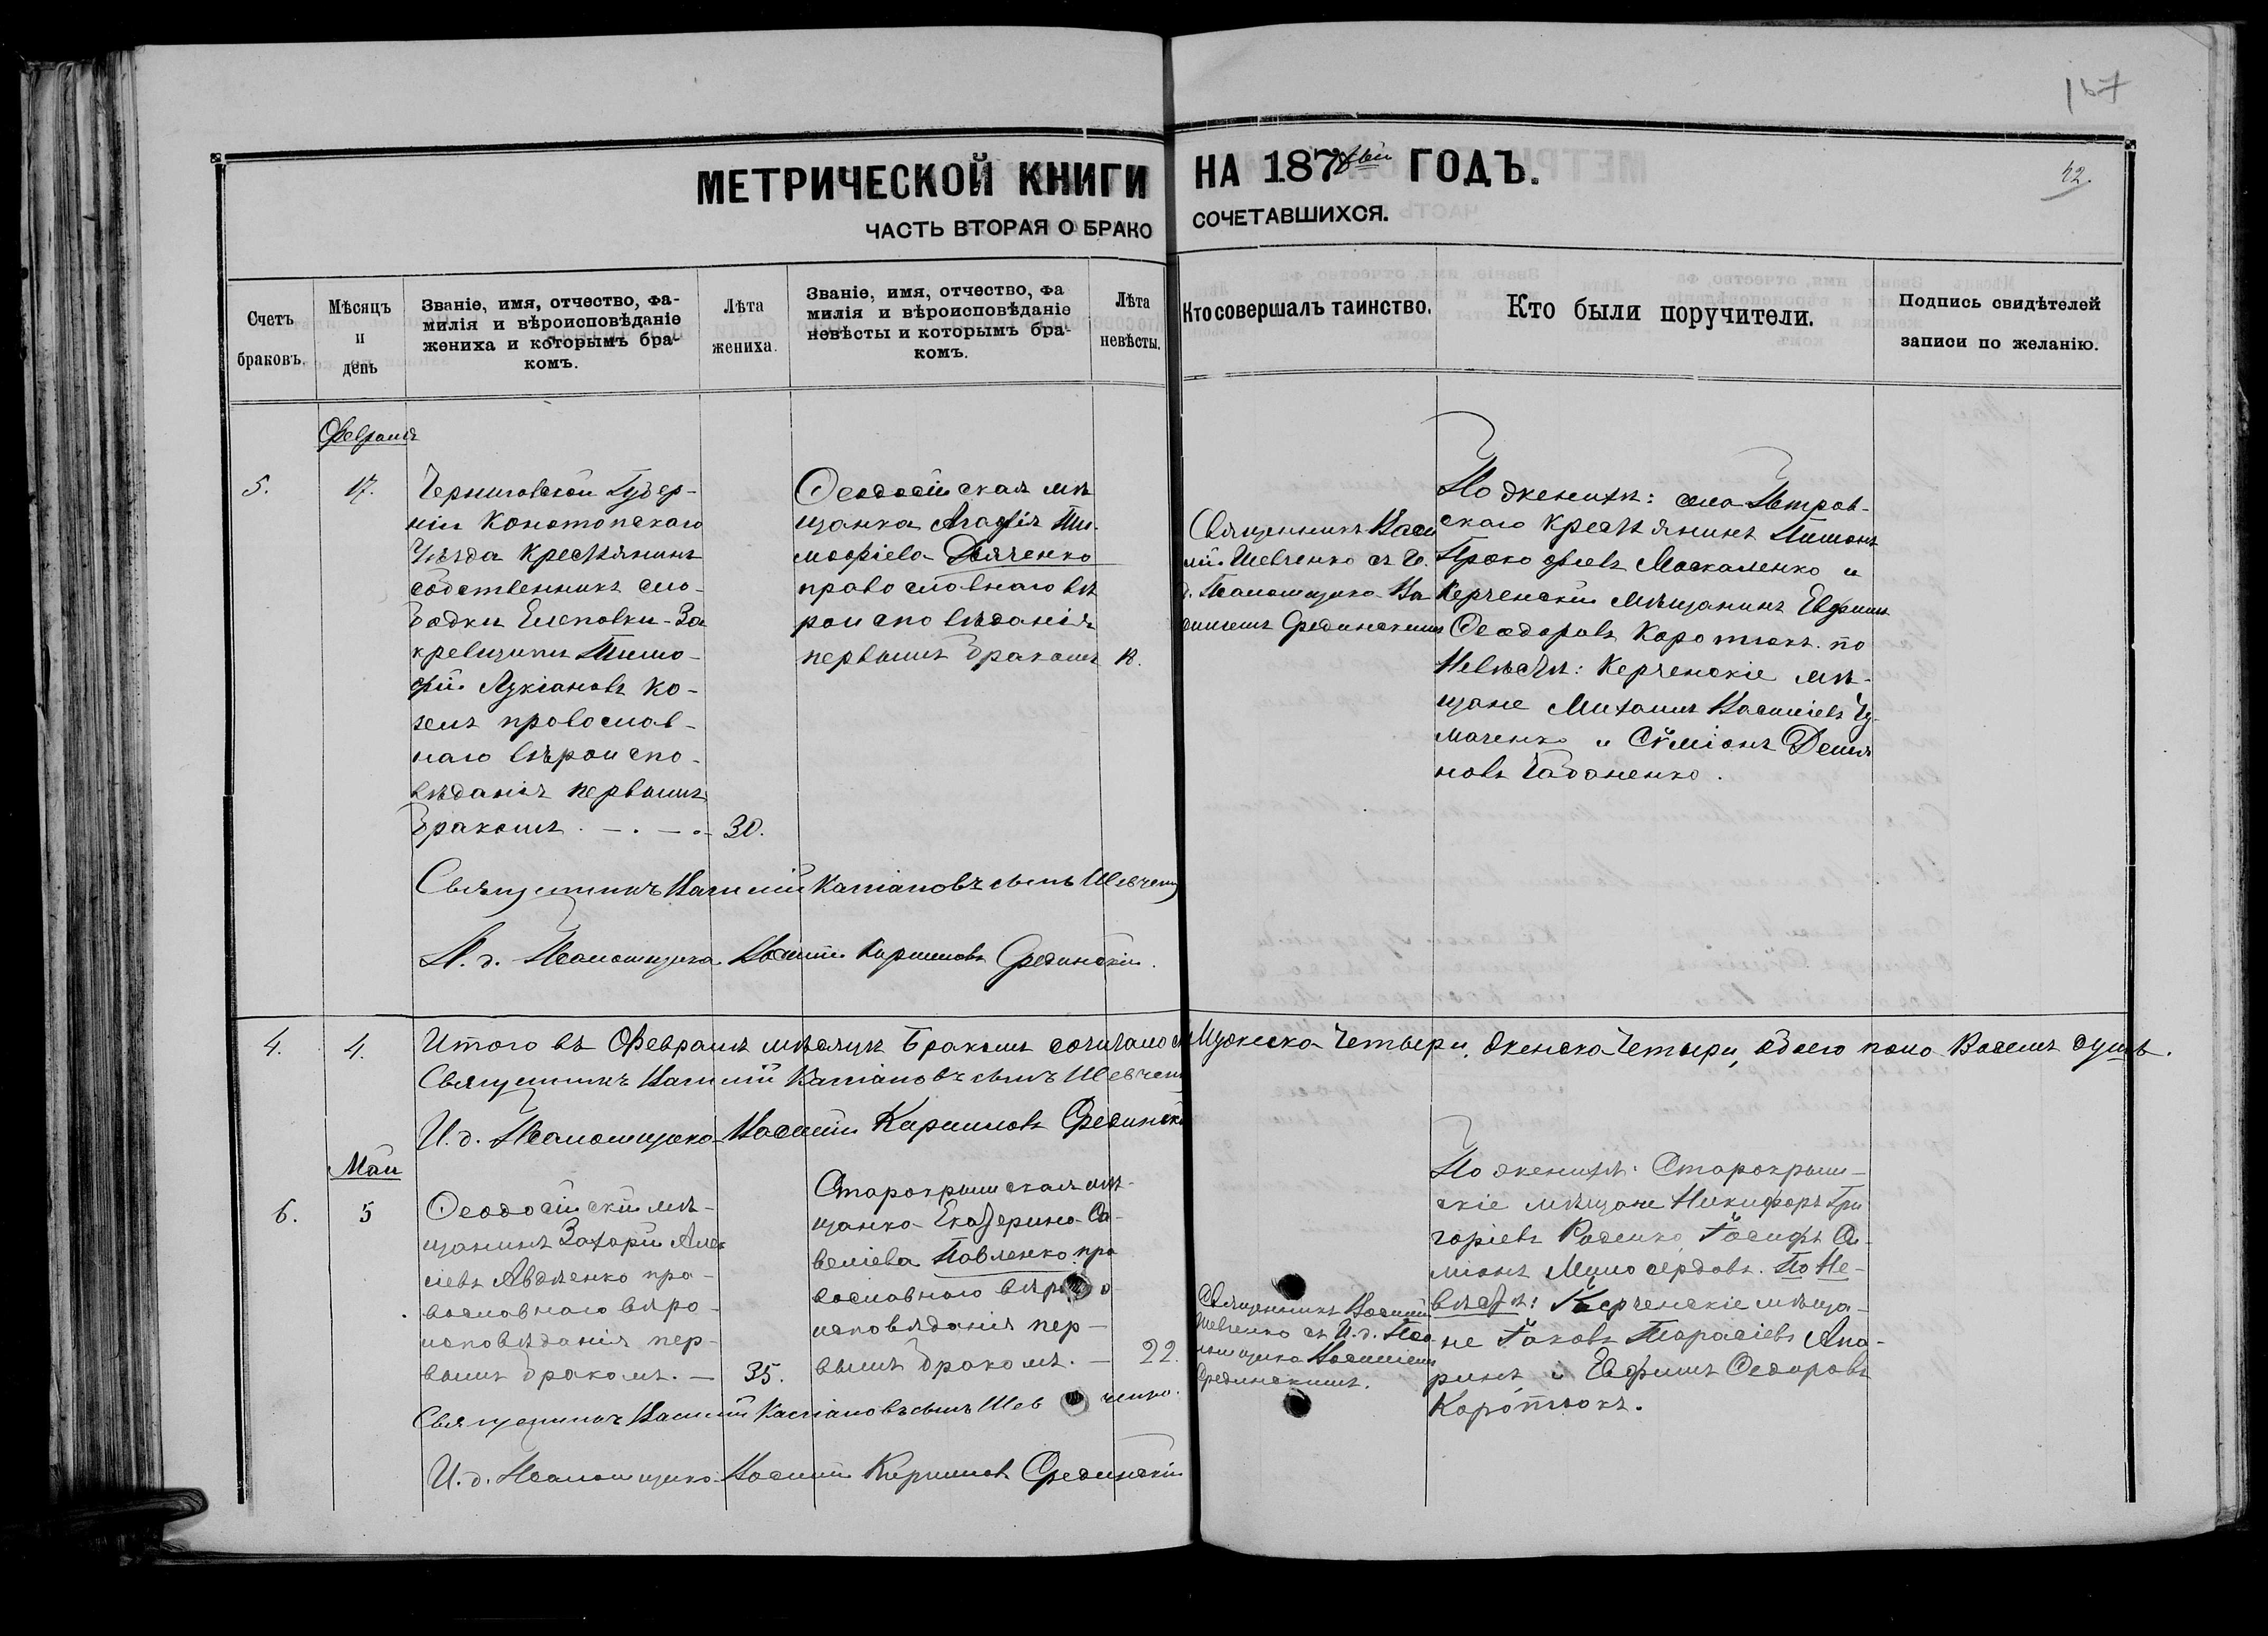 167
МЕТРИЧЕСКОЙ КНИГИ НА 1878й ГОДЪ.
42.
ЧАСТЬ ВТОРАЯ О БРАКО СОЧЕТАВШИХСЯ.
Счетъ браковъ.
Мѣсяцъ и день
Званіе, имя, отчество, фа-
милія и вѣроисповѣданіе
жениха и которымъ бра-
комъ.
Лѣта жениха.
Званіе, имя, отчество, фа
милія и вѣроисповѣданіе
невѣсты и которымъ бра-
комъ.
Лѣта невѣсты.
Кто совершалъ таинство.
Кто были поручители.
Подпись свидѣтелей
записи по желанію.
Февраля
5.
17.
Черниговской Губер-
ніи Конотопскаго
Уѣзда Крестьянинъ
собственникъ сло-
бодки
Тимо-
фій Лукіановъ Ко-
зелъ провослав-
наго вѣроиспо-
вѣданія первымъ
бракомъ . — . — . —
30.
Ѳеодосійская мѣ
щанка Агафія Ти-
мофіева Дяченко
православнаго вѣ
роисповѣданія
первымъ бракомъ
18.
Священникъ Васи
лій Шевченко съ И.
д. Псаломщика Ва
силіемъ Срединскимъ
По женихѣ: села Петров-
скаго Крестьянинъ Пимонъ
Прокофіевъ Москаленко и
Керченскій мѣщанинъ Евфимъ
Ѳеодоровъ Коротюкъ. по
Невѣстѣ: Керченскіе мѣ-
щане Михаилъ Василіевъ Чу-
маченко и Сѵмеонъ Демья
новъ Чабаненко.
Священникъ Василій Кассіановъ сынъ Шевченко
И. д. Псаломщика Василій Кириловъ Срединскій.
4.
4.
Итого въ Февралѣ мѣсяцѣ Бракомъ сочитано Мужеска Четыри, Женска Четыри, обоего пола Восемъ душъ.
Священникъ Василій Кассіановъ сынъ Шевченко
И. д. Псаломщика Василій Кириловъ Срединскій
Маи
6.
5
Ѳеодосійскій мѣ-
щанинъ Захарій Алек
сіевъ Авдѣенко пра-
вославнаго вѣро-
исповѣданія пер-
вымъ бракомъ. —
35.
Старокрымская мѣ-
щанка Екатерина Са-
веліева Павленко пра
вославнаго вѣро
исповѣданія пер-
вымъ бракомъ. —
22.
Священникъ Василій
Шевченко съ И. д. Пса-
ломщика Василіемъ
Срединскимъ.
По женихѣ: Старокрым-
скіе мѣщане Никифоръ Гри
горіевъ Росенко, Іосифъ Си-
міонъ Милосердовъ. По Не-
вѣстѣ: Керченскіе мѣща-
не Іаковъ Тарасіевъ Апа-
ринъ и Евфимъ Ѳедоровъ
Коротюкъ.
Священникъ Василій Кассіановъ сынъ Шевченко.
И. д. Псаломщика Василій Кириловъ Срединскій